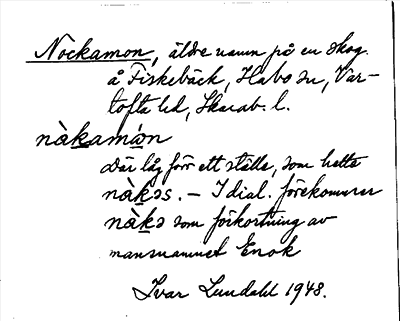 Nockamon, äldre namn på en skog
å Fiskebäck, Habo sn, Var-
tofta hd, Skarab. l.
nàkamón
där låg förr ett ställe, som hette
nàkəs. – I dial. förekommer
nàkə som förkortning av
mansnamnet Enok
Ivar Lundahl 1948.